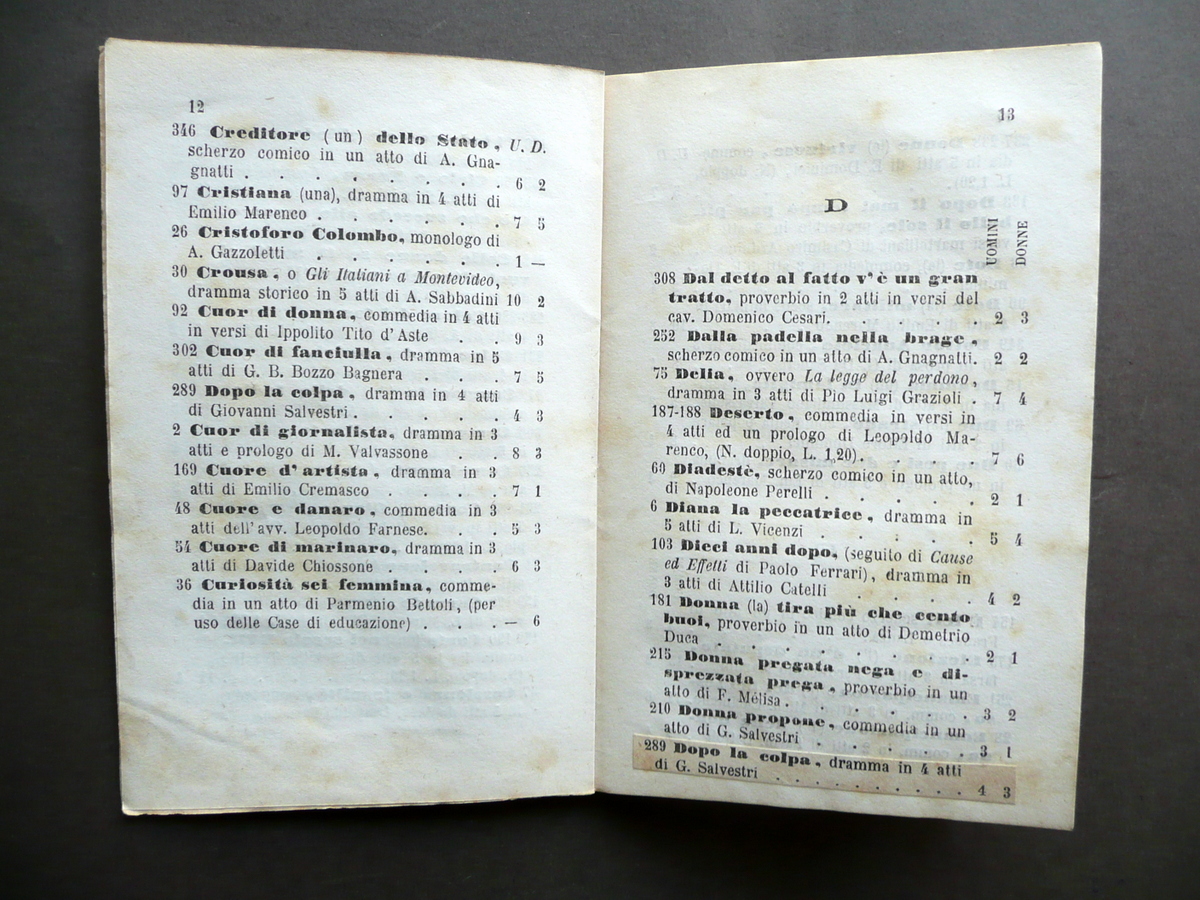 12
346 Creditore (un) dello Stato, U. D.
scherzo comico in un atto di A. Gna-
gnatti . . . . . . . . 6 2
97 Cristiana (una), dramma in 4 atti di
Emilio Marenco . . . . . . 7 5
26 Cristoforo Colombo, monologo di
A. Gazzoletti . . . . . . 1 —
30 Crousa, o Gli Italiani a Montevideo,
dramma storico in 5 atti di A. Sabbadini 10 2
92 Cuor di donna, commedia in 4 atti
in versi di Ippolito Tito d'Aste . . 9 3
302 Cuor di fanciulla, dramma in 5
atti di G. B. Bozzo Bagnera . . . 7 5
289 Dopo la colpa, dramma in 4 atti
di Giovanni Salvestri . . . . . 4 3
2 Cuor di giornalista, dramma in 3
atti e prologo di M. Valvassone . . 8 3
169 Cuore d'artista, dramma in 3
atti di Emilio Cremasco . . . . 7 1
48 Cuore e danaro, commedia in 3
atti dell'avv. Leopoldo Farnese. . . 5 3
54 Cuore di marinaro, dramma in 3
atti di Davide Chiossone . . . . 6 3
36 Curiosità sei femmina, comme-
dia in un atto di Parmenio Bettoli, (per
uso delle Case di educazione) . . . — 6
13
D
UOMINI
DONNE
308 Dal detto al fatto v'è un gran
tratto, proverbio in 2 atti in versi del
cav. Domenico Cesari. . . . . . 2 3
252 Dalla padella nella brage,
scherzo comico in un atto di A. Gnagnatti. 2 2
75 Delia, ovvero La legge del perdono,
dramma in 3 atti di Pio Luigi Grazioli . 7 4
187-188 Deserto, commedia in versi in
4 atti ed un prologo di Leopoldo Ma-
renco, (N. doppio, L. 1,20). . . . . 7 6
60 Diadestè, scherzo comico in un atto,
di Napoleone Perelli . . . . . 2 1
6 Diana la peccatrice, dramma in
5 atti di L. Vicenzi . . . . . 5 4
103 Dieci anni dopo, (seguito di Cause
ed Effetti di Paolo Ferrari), dramma in
3 atti di Attilio Catelli . . . . . 4 2
181 Donna (la) tira più che cento
buoi, proverbio in un atto di Demetrio
Duca . . . . . . . . 2 1
215 Donna pregata nega e di-
sprezzata prega, proverbio in un
atto di F. Mélisa . . . . . . 3 2
210 Donna propone, commedia in un
atto di G. Salvestri . . . . . 3 1
289 Dopo la colpa, dramma in 4 atti
di G. Salvestri . . . . . . . . . 4 3